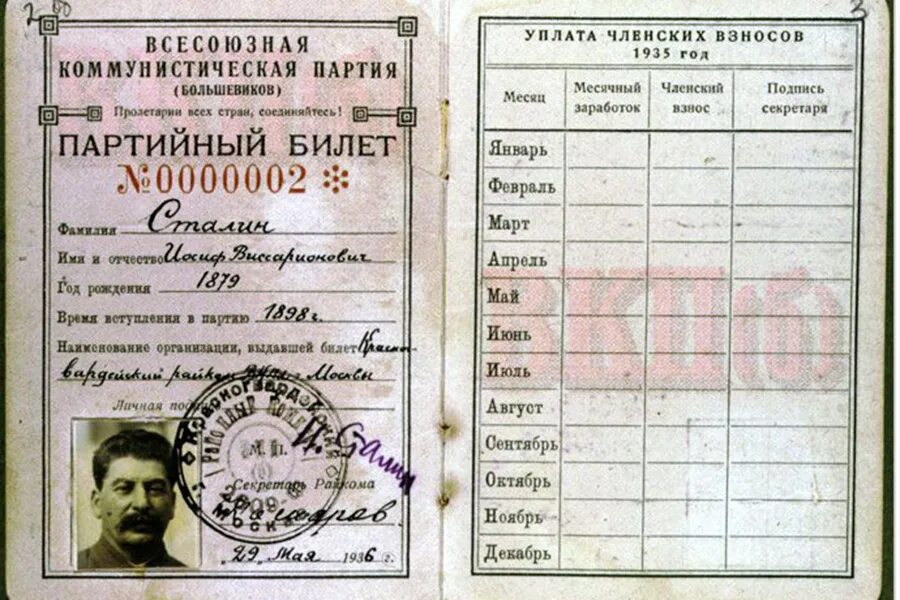 ВСЕСОЮЗНАЯ
КОММУНИСТИЧЕСКАЯ ПАРТИЯ
(БОЛЬШЕВИКОВ)
Пролетарии всех стран, соединяйтесь!
ПАРТИЙНЫЙ БИЛЕТ
№ 0000002
Фамилия Сталин
Имя и отчество Иосиф Виссарионович
Год рождения 1879
Время вступления в партию 1898 г.
Наименование организации, выдавшей билет Красно-
вардейский райком г. Москвы
Личная
Красногвардейский
Районный Ком
МОСКВА
М. П.
И. Сталин
Секретарь Райкома
29 Мая 1936 г.
3
УПЛАТА ЧЛЕНСКИХ ВЗНОСОВ
1935 год
Месяц Месячный заработок Членский взнос Подпись секретаря
Январь
Февраль
Март
Апрель
Май
Июнь
Июль
Август
Сентябрь
Октябрь
Ноябрь
Декабрь
ВКП(б)